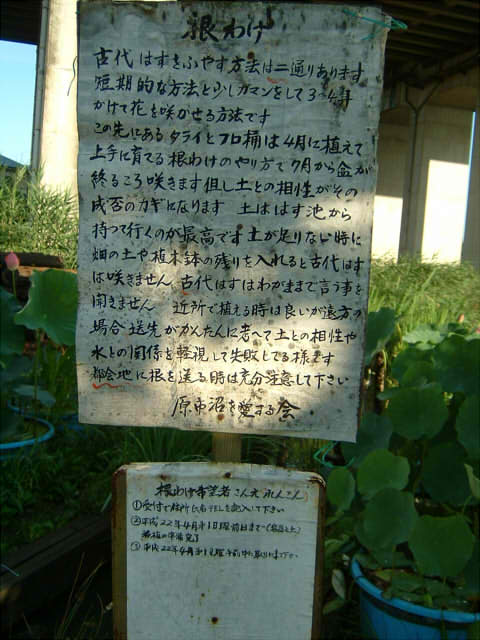 根わけ
古代はすをふやす方法は二通りあります
短期的な方法と少しガマンをして3〜4年
かけて花を咲かせる方法です
この先にあるタライとフロ桶は4月に植えて
上手に育てる根わけのやり方で7月から盆が
終るころ咲きます但し土との相性がその
成否のカギになります 土ははす池から
持って行くのが最高です土が足りない時に
畑の土や植木鉢の残りを入れると古代はす
は咲きません、古代はすはわがままで言う事を
聞きません 近所で植える時は良いが遠方の
場合送先がかんたんに考へて土との相性や
水との関係を軽視して失敗してる様です
都会地に根を送る時は充分注意して下さい
原市沼を愛する会
根わけ希望者さんえ
①受付で住所 氏名 TELを記入して下さい
②平成22年4月第1日曜前日まで
③平成22年4月第1日曜午前中に取りに来て下さい